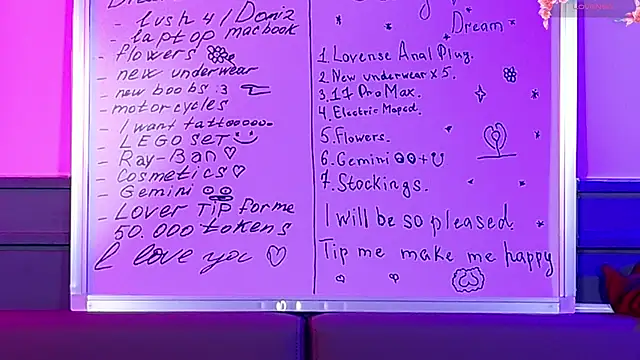 - lush 4/Domi2
- laptop macbook
- flowers
- new underwear
- new boobs :3
- motorcycles
- I want tattooooo-
- LEGO SET
- Ray-Ban ♡
- Cosmetics ♡
- Gemini
- Lover TiP for me
50.000 tokens
I love you ♡
Dream
1. Lovense Anal Plug.
2. New underwear x 5.
3. 17 Pro Max.
4. Electric Moped.
5. Flowers.
6. Gemini
7. Stockings.
I will be so pleased.
Tip me make me happy